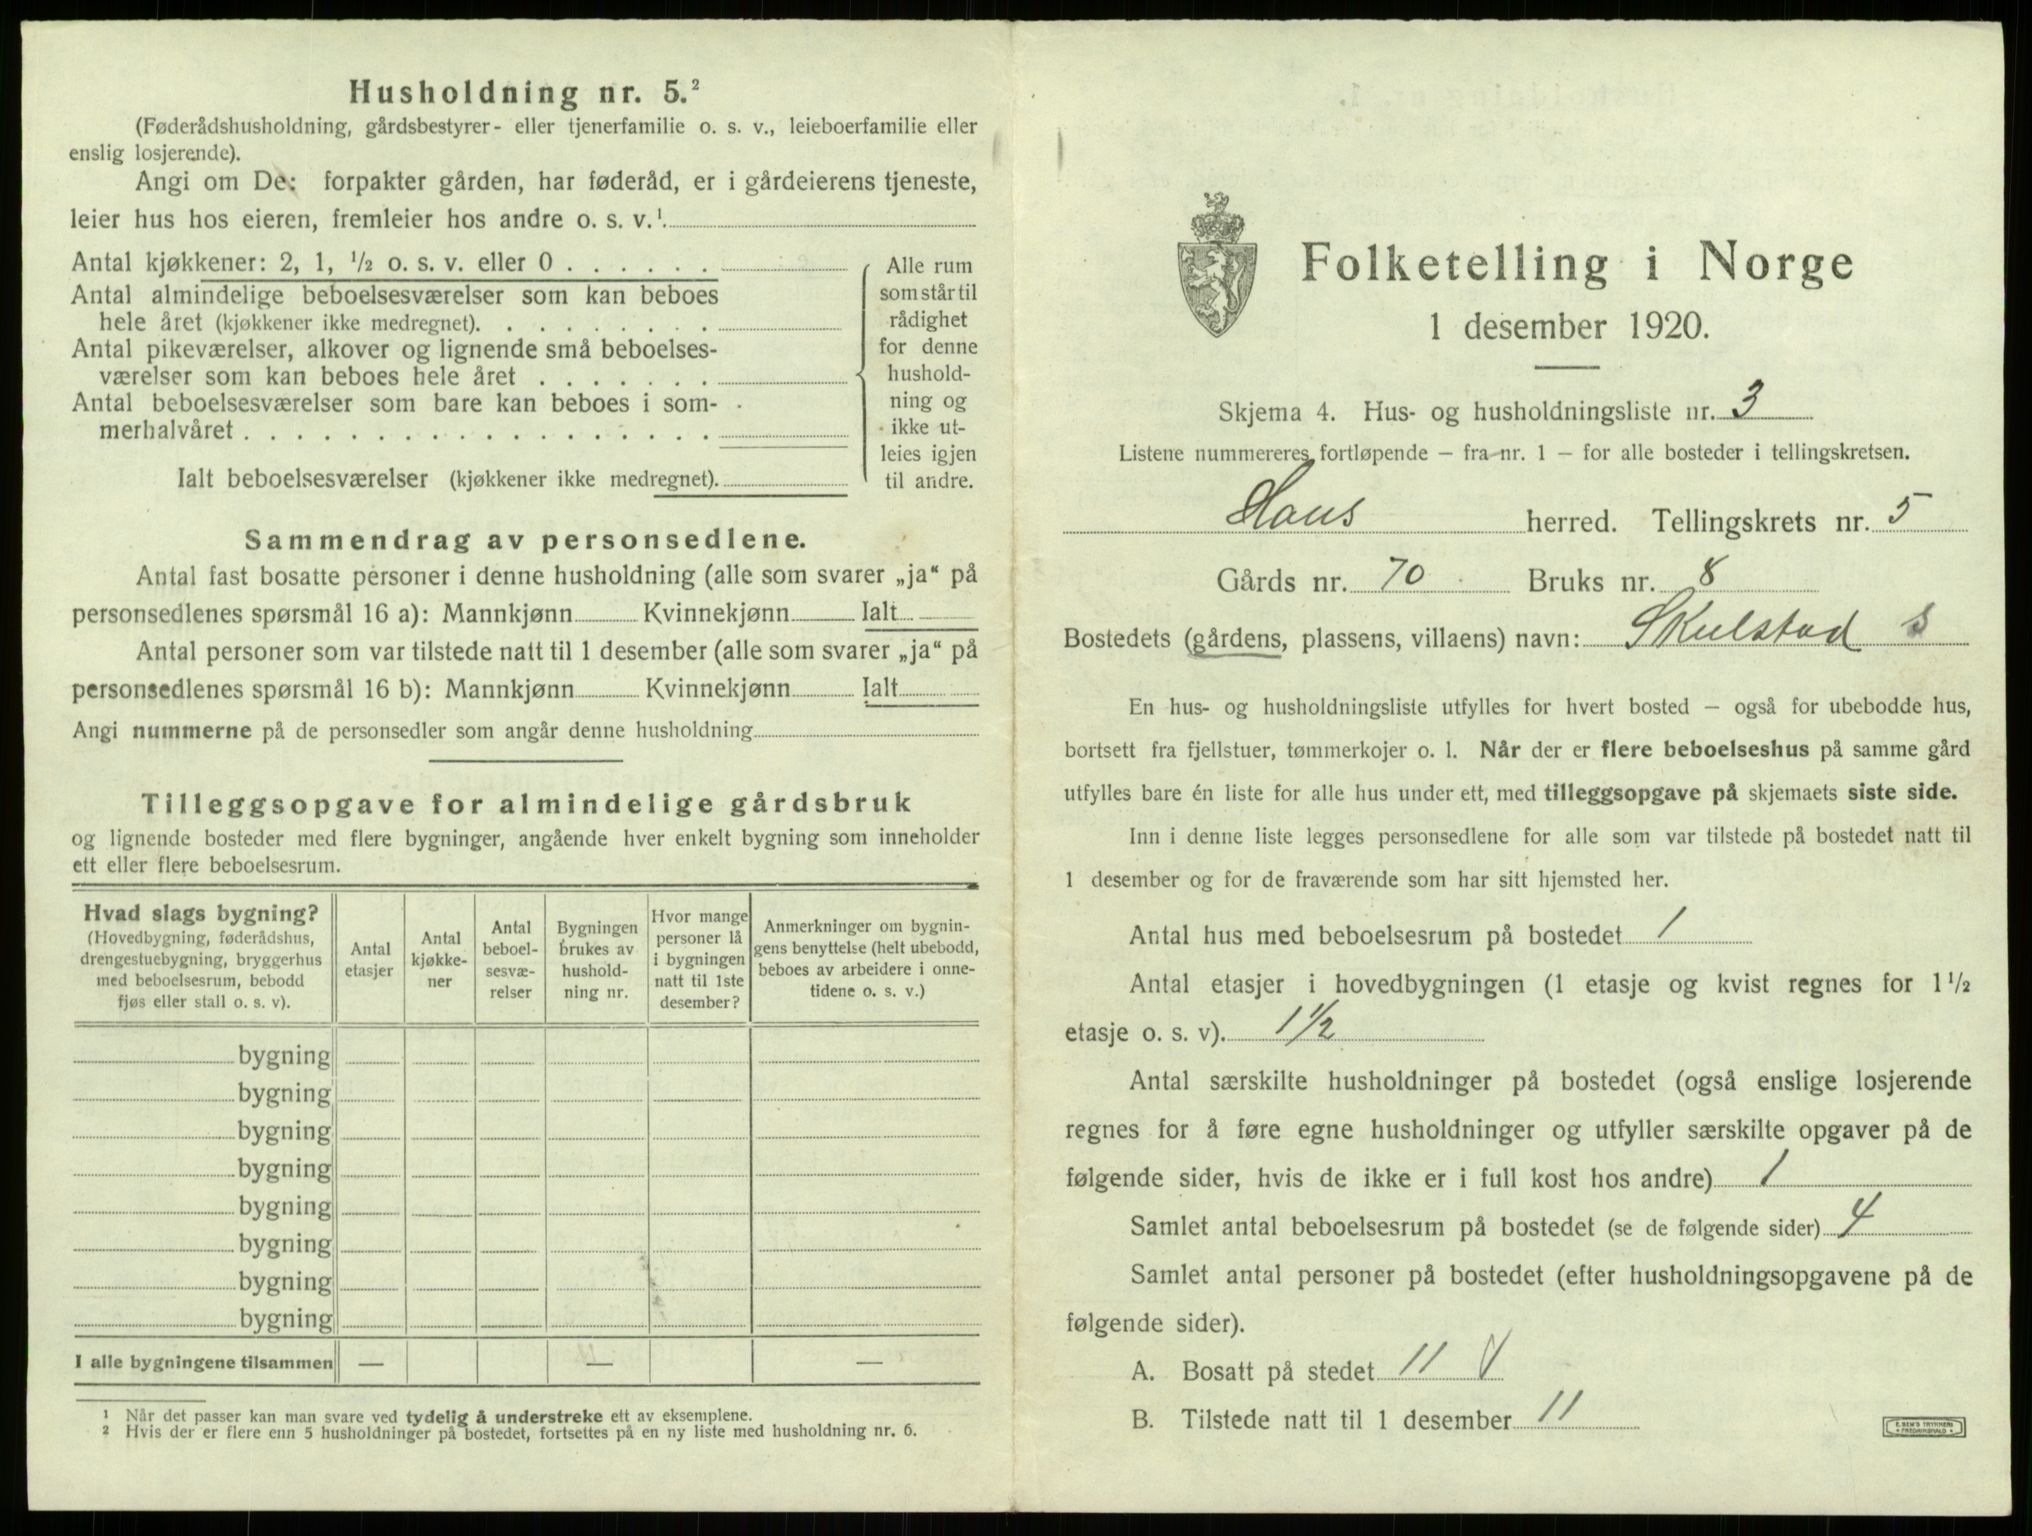 Husholdning nr. 5.²
(Føderådshusholdning, gårdsbestyrer- eller tjenerfamilie o. s. v., leieboerfamilie eller
enslig losjerende).
Angi om De: forpakter gården, har føderåd, er i gårdeierens tjeneste,
leier hus hos eieren, fremleier hos andre o. s. v.¹
Antal kjøkkener: 2, 1, ½ o. s. v. eller 0 . . . . . .
Antal almindelige beboelsesværelser som kan beboes
hele året (kjøkkener ikke medregnet). . . . . . . . .
Antal pikeværelser, alkover og lignende små beboelses-
værelser som kan beboes hele året . . . . . . .
Antal beboelsesværelser som bare kan beboes i som-
merhalvåret . . . . . . . . . . . . . . . . . .
Ialt beboelsesværelser (kjøkkener ikke medregnet).
Alle rum
som står til
rådighet
for denne
hushold-
ning og
ikke ut-
leies igjen
til andre.
Sammendrag av personsedlene.
Antal fast bosatte personer i denne husholdning (alle som svarer „ja“ på
personsedlenes spørsmål 16 a): Mannkjønn Kvinnekjønn Ialt
Antal personer som var tilstede natt til 1 desember (alle som svarer „ja“ på
personsedlenes spørsmål 16 b): Mannkjønn Kvinnekjønn Ialt
Angi nummerne på de personsedler som angår denne husholdning
Tilleggsopgave for almindelige gårdsbruk
og lignende bosteder med flere bygninger, angående hver enkelt bygning som inneholder
ett eller flere beboelsesrum.
Hvad slags bygning?
(Hovedbygning, føderådshus,
drengestuebygning, bryggerhus
med beboelsesrum, bebodd
fjøs eller stall o. s. v).
Antal
etasjer
Antal
kjøkke-
ner
Antal
beboel-
sesvæ-
relser
Bygningen
brukes av
hushold-
ning nr.
Hvor mange
personer lå
i bygningen
natt til 1ste
desember?
Anmerkninger om bygnin-
gens benyttelse (helt ubebodd,
beboes av arbeidere i onne-
tidene o. s. v.)
bygning
bygning
bygning
bygning
bygning
bygning
bygning
bygning
I alle bygningene tilsammen — — —
¹ Når det passer kan man svare ved tydelig å understreke ett av eksemplene.
² Hvis der er flere enn 5 husholdninger på bostedet, fortsettes på en ny liste med husholdning nr. 6.
Folketelling i Norge
1 desember 1920.
Skjema 4. Hus- og husholdningsliste nr. 3
Listene nummereres fortløpende – fra nr. 1 – for alle bosteder i tellingskretsen.
Haus herred. Tellingskrets nr. 5
Gårds nr. 70 Bruks nr. 8
Bostedets (gårdens, plassens, villaens) navn: Skulstad
En hus- og husholdningsliste utfylles for hvert bosted – også for ubebodde hus,
bortsett fra fjellstuer, tømmerkojer o. l. Når der er flere beboelseshus på samme gård
utfylles bare én liste for alle hus under ett, med tilleggsopgave på skjemaets siste side.
Inn i denne liste legges personsedlene for alle som var tilstede på bostedet natt til
1 desember og for de fraværende som har sitt hjemsted her.
Antal hus med beboelsesrum på bostedet 1
Antal etasjer i hovedbygningen (1 etasje og kvist regnes for 1½
etasje o. s. v). 1½
Antal særskilte husholdninger på bostedet (også enslige losjerende
regnes for å føre egne husholdninger og utfyller særskilte opgaver på de
følgende sider, hvis de ikke er i full kost hos andre) 1
Samlet antal beboelsesrum på bostedet (se de følgende sider) 4
Samlet antal personer på bostedet (efter husholdningsopgavene på de
følgende sider).
A. Bosatt på stedet 11
B. Tilstede natt til 1 desember 11